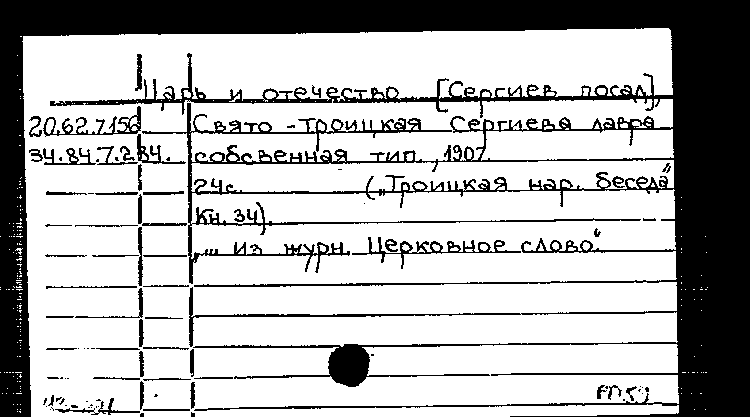 Царь и отечество [Сергиев посад],
20.62.7.156 Свято-Троицкая Сергиева лавра
34.84.7.284. собсвенная тип., 1907.
24с. („Троицкая нар. беседа“
Кн. 34).
„... из журн. Церковное слово“.